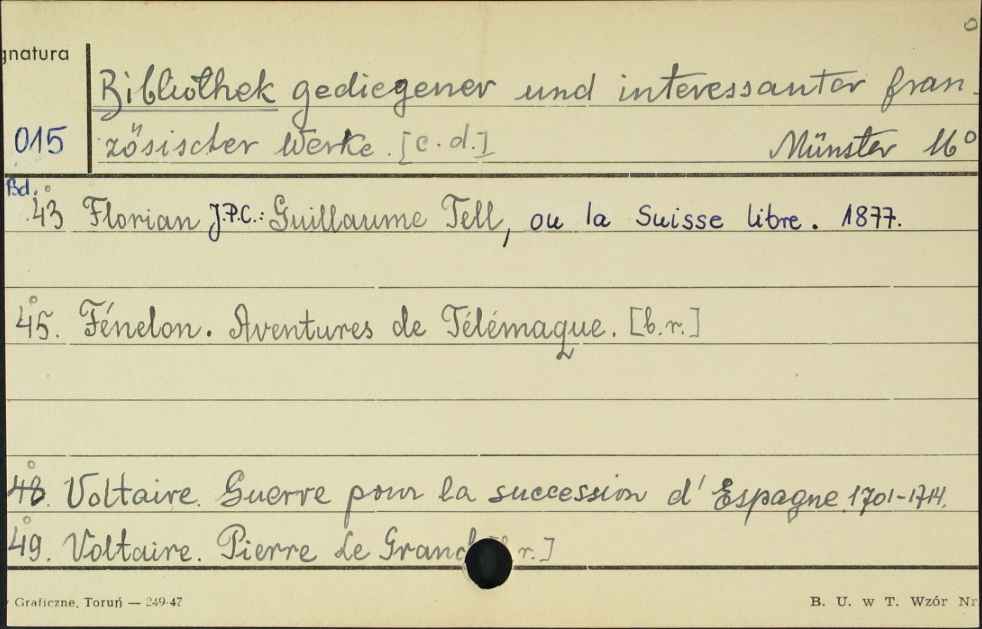 gnatura
Bibliothek gediegener und interessanter fran-
015 zösischer Werke. [c.d.] Münster 16°
Bd.
43 Florian J.P.C.: Guillaume Tell, ou la Suisse libre. 1877.
45. Fénelon. Aventures de Télémaque. [b.r.]
48. Voltaire. Guerre pour la succession d'Espagne 1701-1714.
49. Voltaire. Pierre Le Grand r.]
Graficzne, Toruń — 249-47 B. U. w T. Wzór Nr